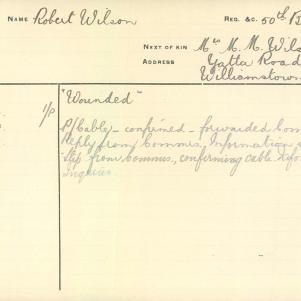 NAME Robert Wilson REG. &C. 50th B
NEXT OF KIN Mrs M. M. Wils
ADDRESS Yatta Road
Williamstown
"Wounded"
1/P P/Cable) – confirmed – forwarded Com
Reply from Commis. Information
slip from Commis., confirming cable
Inquiries